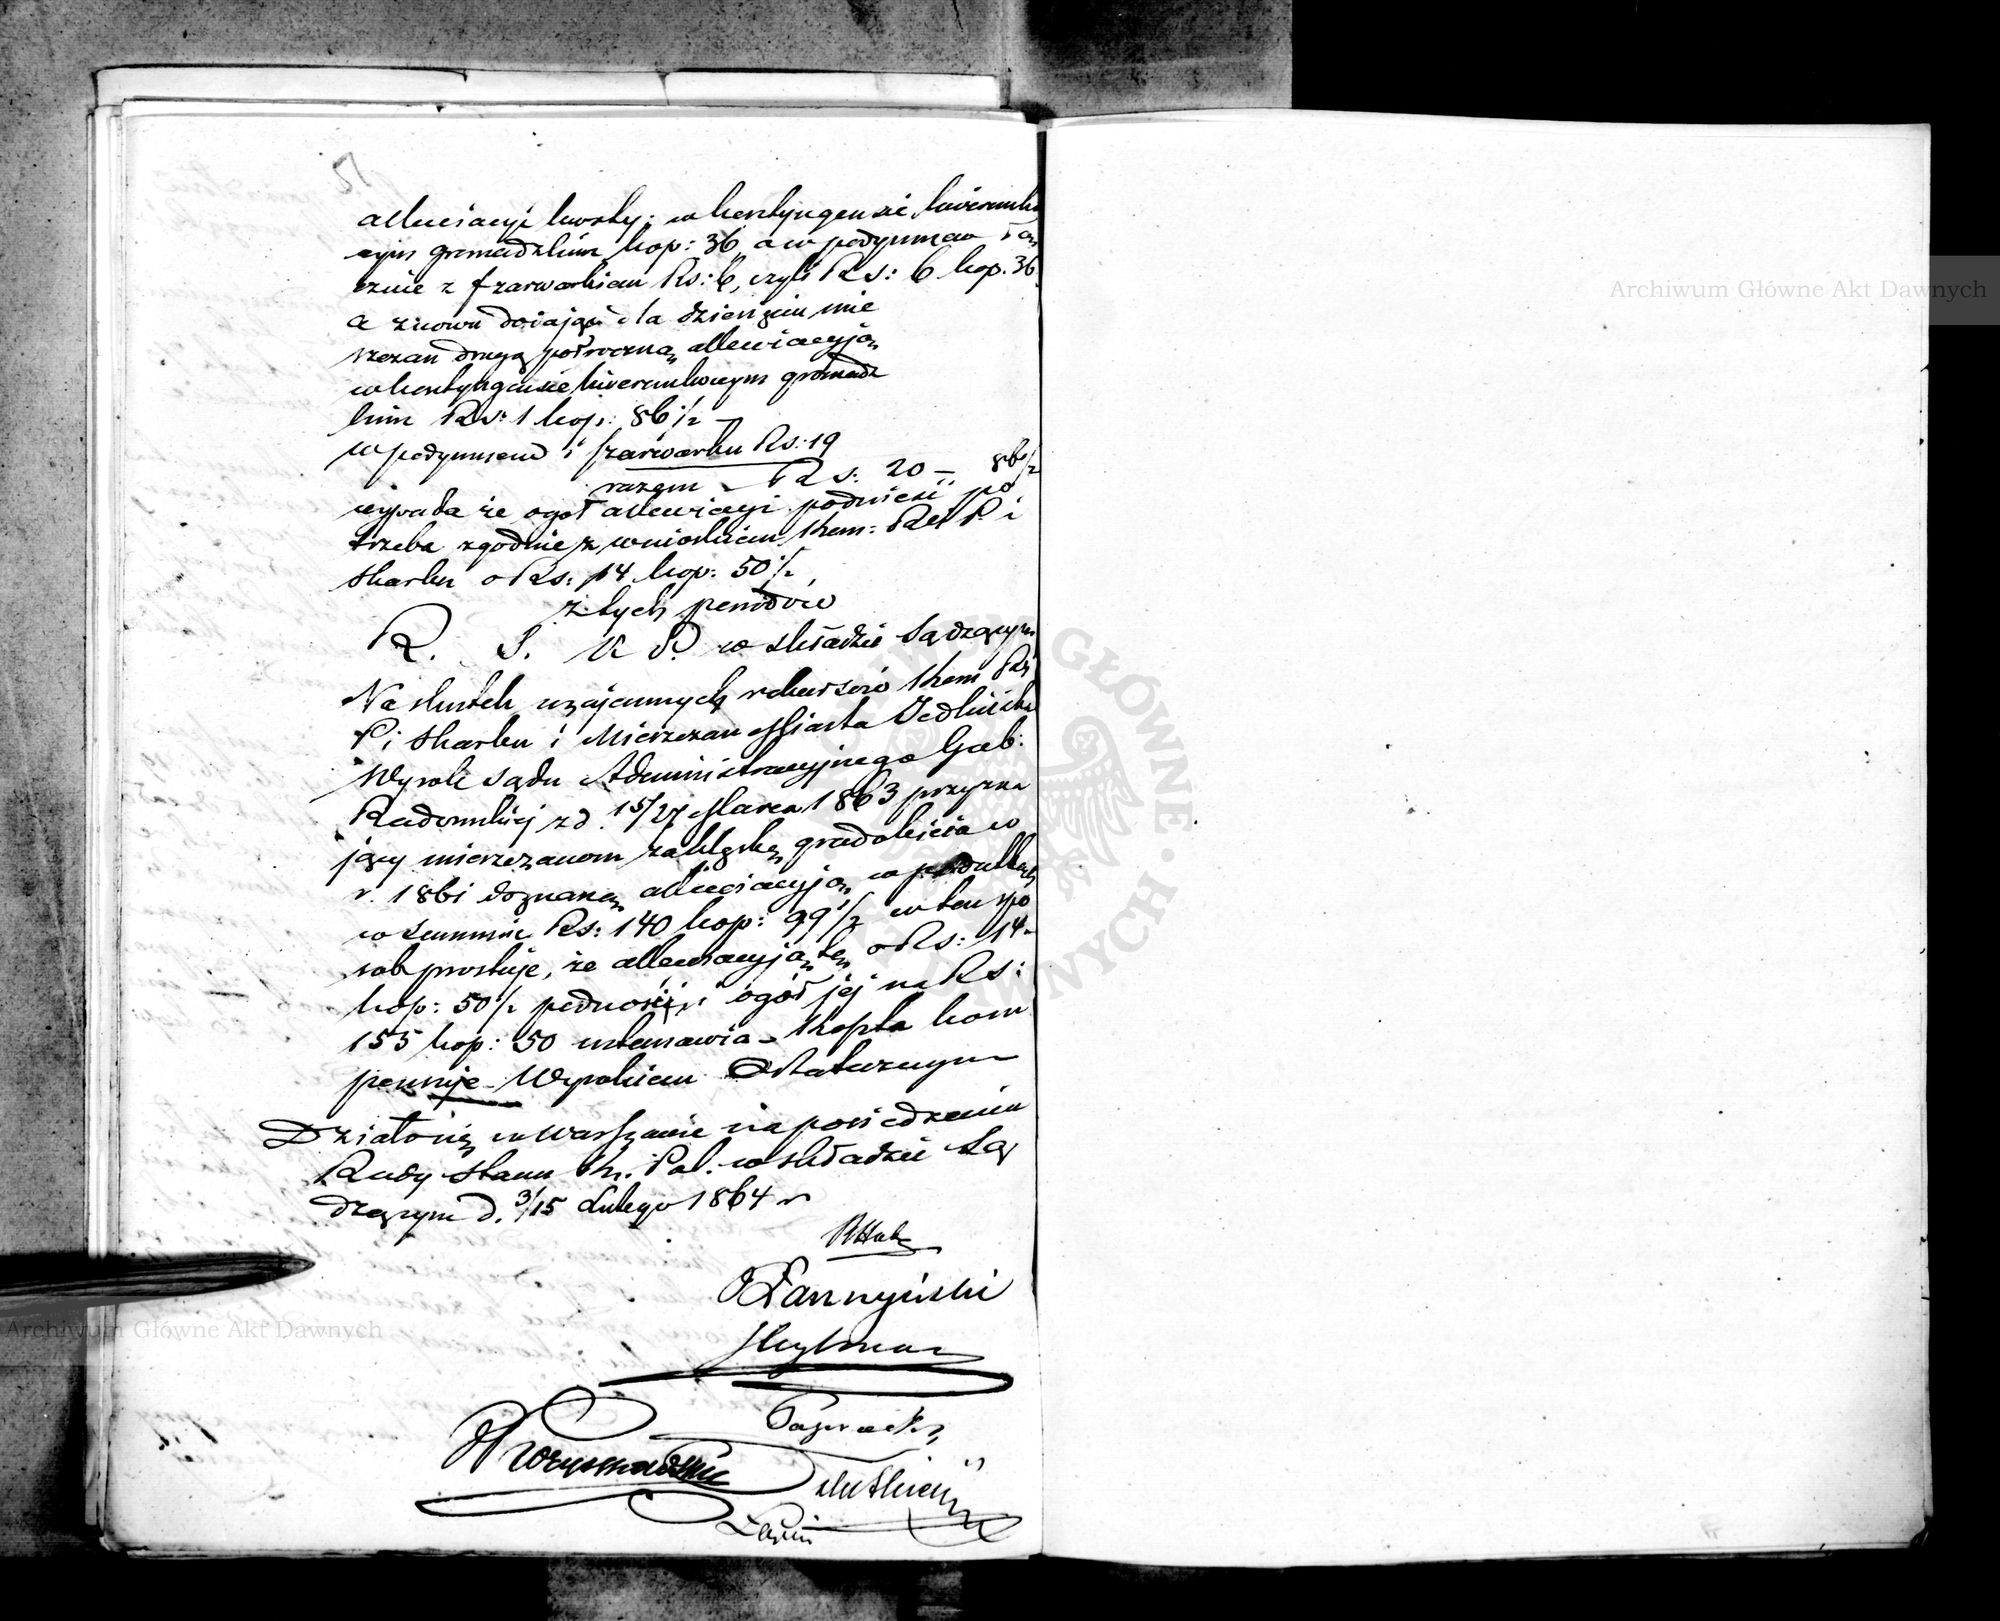 allewiacyi kwoty: w kontyngensie liwerunko
wym gromadzkim kop: 36, a w podymnem łą
cznie z szarwarkiem Rs: 6, czyli Rs: 6 kop. 36
a znowu dodając dla dzie mie
szczan drugą półroczną allewiacyją
w kontyngensie liwerunkowym gromadz
kim Rs: 1 kop: 86 1/2 –
w podymnem i szarwarku Rs: 19
razem – Rs: 20 – 86 1/2
wypada że ogół allewiacyi podnieść po
trzeba zgodnie z wnioskiem Kom: R. P. i
Skarbu o Rs: 14 kop: 50 1/2
z tych powodów
R. S. K. P. w składzie Sądzącym
Na skutek wzajemnych rekursów Kom Rz
P. i Skarbu i Mieszczan Miasta Jedlińska
Wyrok Sądu Administracyjnego Gub:
Radomskiej z d. 15/27 Marca 1863 przyzna
jący mieszczanom za klęskę gradobicia w
r. 1861 doznaną allewiacyją w podatkach
w summie Rs: 140 kop: 99 1/2 w ten spo
sób prostuje, że allewiacyją tę o Rs: 14
kop: 50 1/2 podnosi i ogół jej na Rs:
155 kop: 50 ustanawia – Koszta kom
pensuje – Wyrokiem Ostatecznym –
Działo się w Warszawie na posiedzeniu
Rady Stanu Kr. Pol. w składzie Są
dzącym d. 3/15 Lutego 1864 r
Łaszczyński
Archiwum Główne Akt Dawnych
Archiwum Główne Akt Dawnych
GŁÓWNE